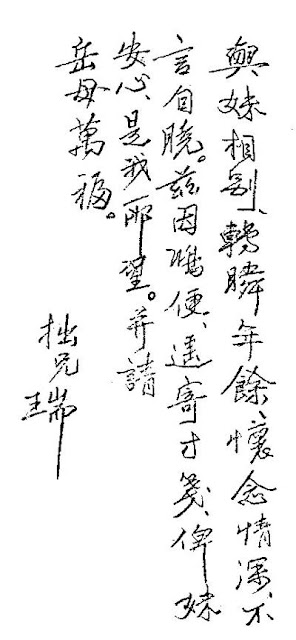 與妹相别、轉瞬年餘、懷念情深、不
言自曉。兹因鴻便、遥寄寸箋、俾妹
安心、是我所望。并請
岳母萬福。
拙兄
瑞